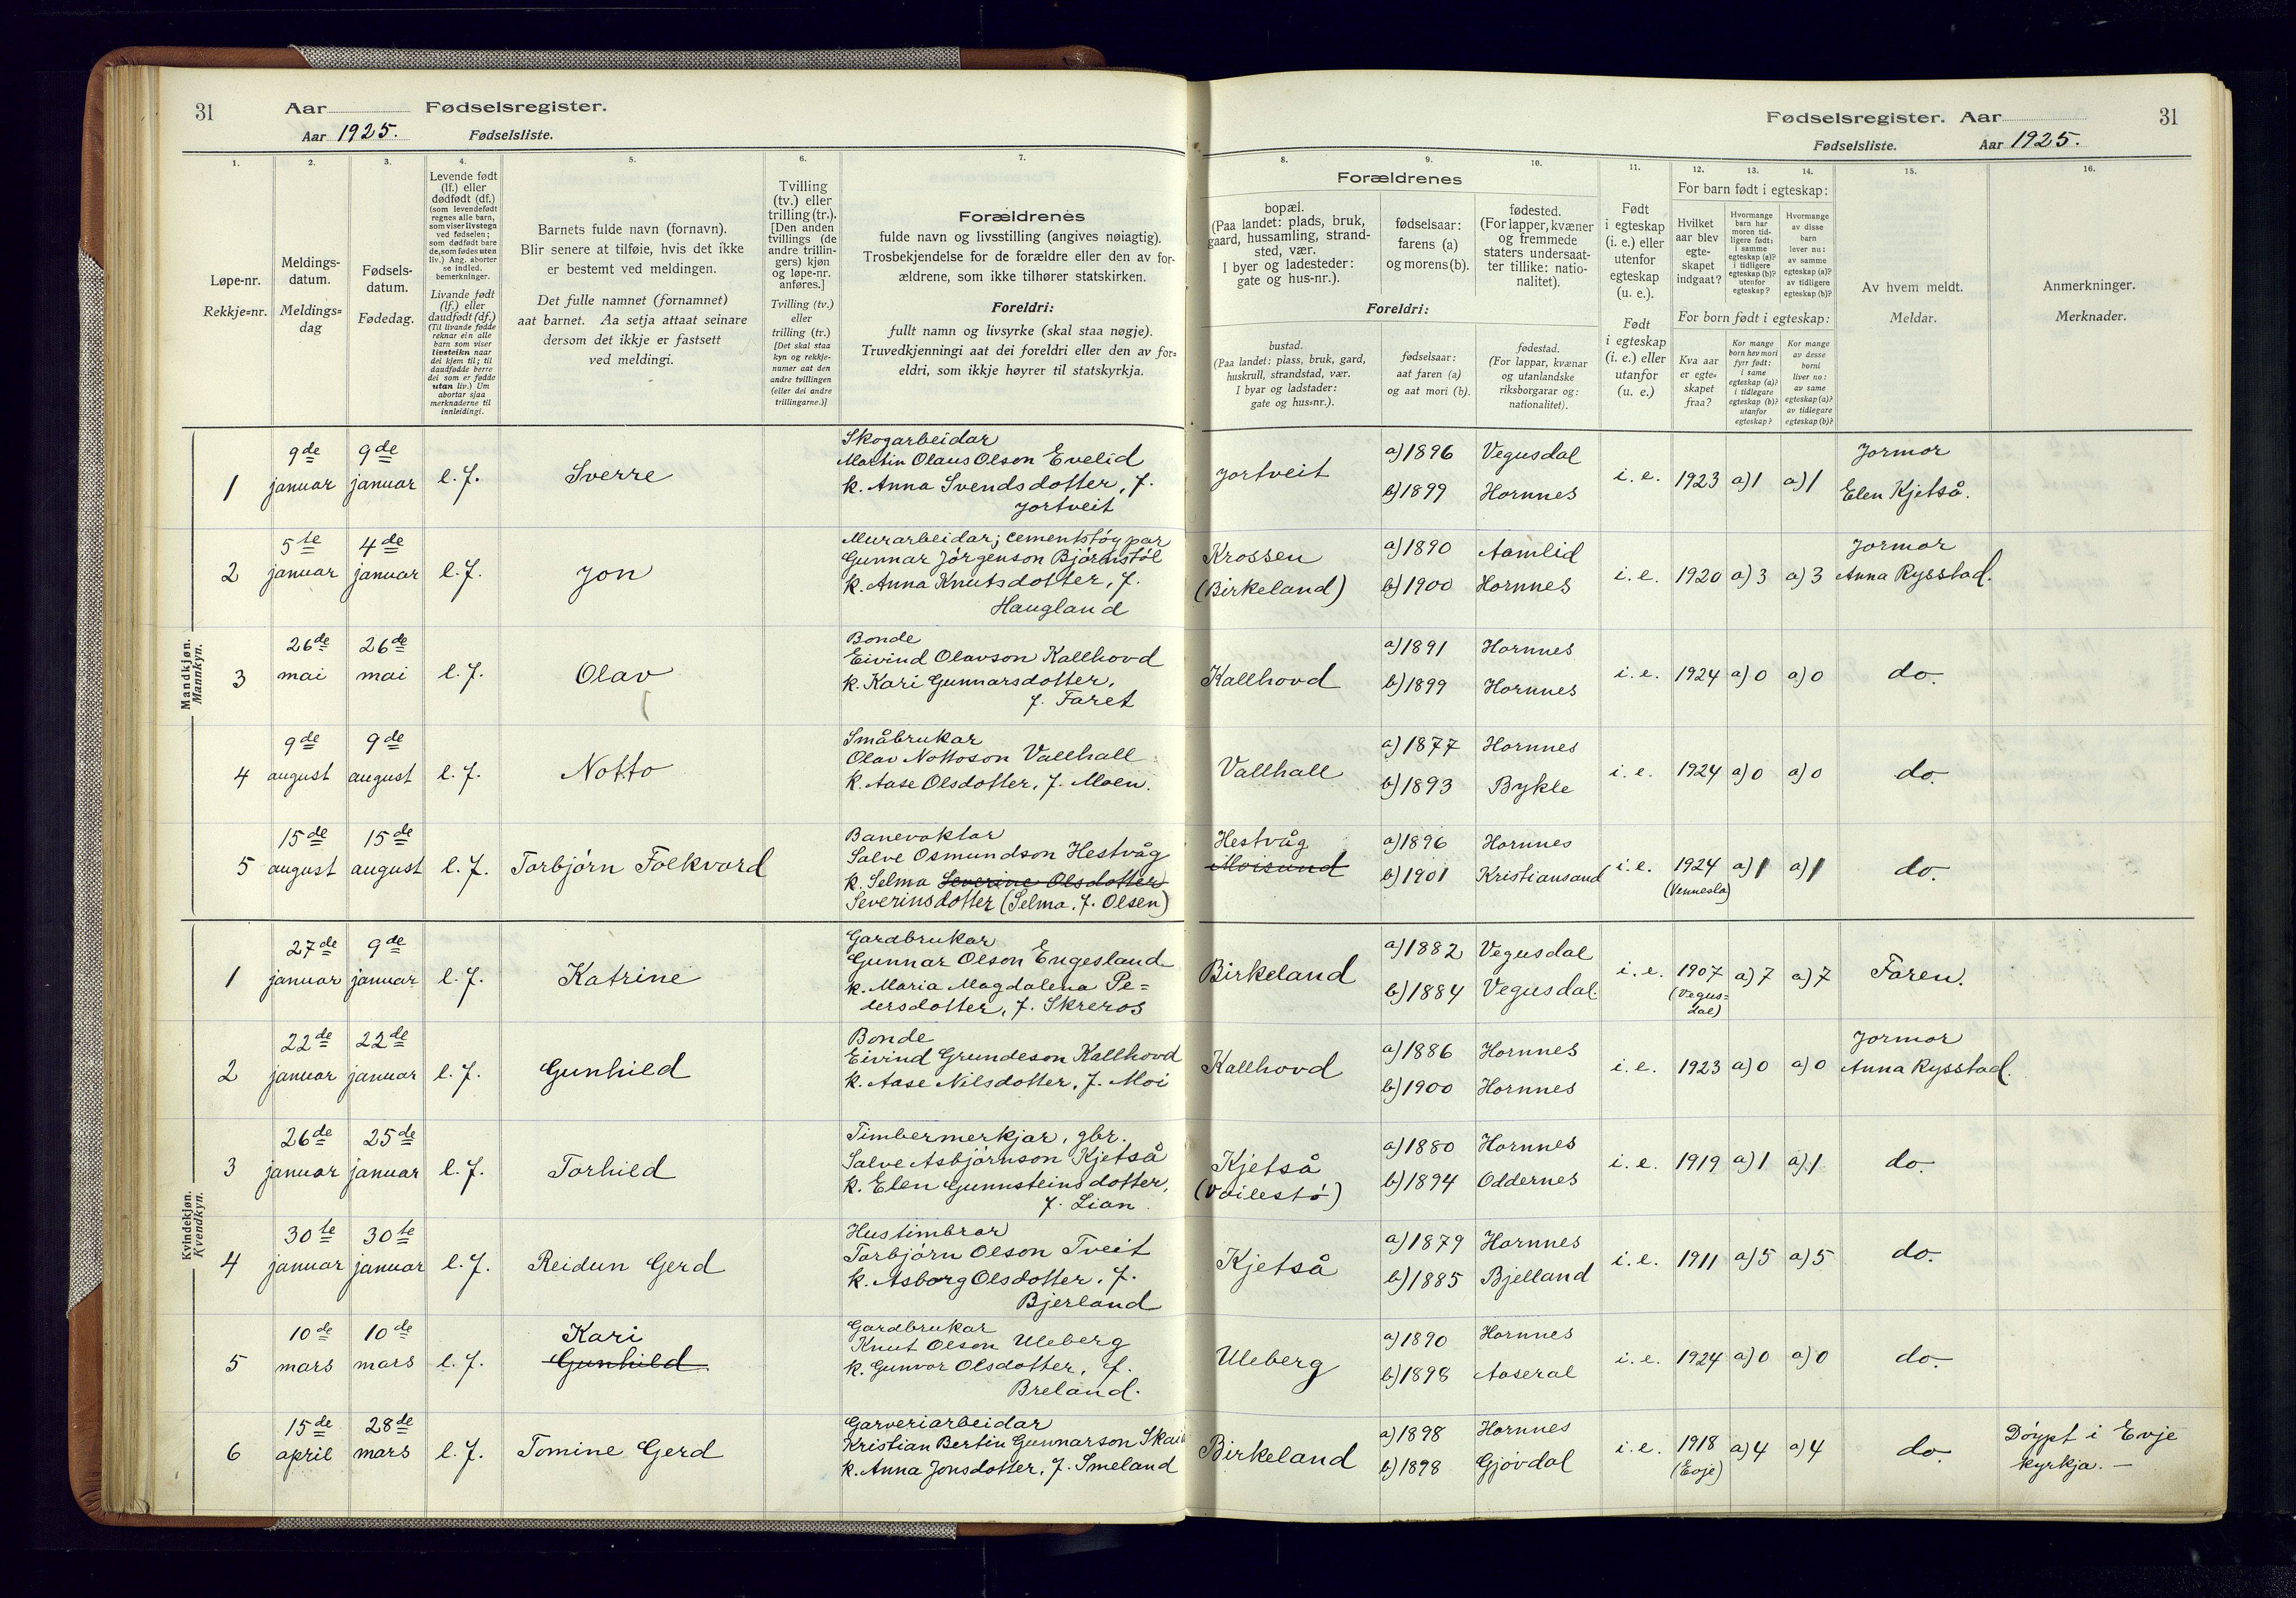 31 Aar Fødselsregister.
Aar 1925. Fødselsliste.
Fødselsregister. Aar 31
Fødselsliste. Aar 1925.
1. 2. 3. 4. 5. 6. 7. 8. 9. 10. 11. 12. 13. 14. 15. 16.
Løpe-nr.
Rekkje=nr.
Meldings-
datum.
Meldings=
dag
Fødsels-
datum.
Fødedag.
Levende født
(lf.) eller
dødfødt (df.)
(som levendefødt
regnes alle barn,
som viser livstegn
ved fødselen;
som dødfødt bare
de, som fødes uten
liv.) Ang. aborter
se indled.
bemerkninger.
Livande født
(lf.) eller
daudfødt (df.)
(Til livande fødde
reknar ein alle
barn som viser
livsteikn naar
dei kjem til; til
daudfødde berre
dei som er fødde
utan liv.) Um
abortar sjaa
merknaderne til
innleidingi.
Barnets fulde navn (fornavn).
Blir senere at tilføie, hvis det ikke
er bestemt ved meldingen.
Det fulle namnet (fornamnet)
aat barnet. Aa setja attaat seinare
dersom det ikkje er fastsett
ved meldingi.
Tvilling
(tv.) eller
trilling (tr.).
[Den anden
tvillings (de
andre trillin-
gers) kjøn
og løpe-nr.
anføres.]
Tvilling (tv.)
eller
trilling (tr.)
[Det skal staa
kyn og rekkje-
numer aat den
andre tvillingen
(eller dei andre
trillingarne.)]
Forældrenes
fulde navn og livsstilling (angives nøiagtig).
Trosbekjendelse for de forældre eller den av for-
ældrene, som ikke tilhører statskirken.
Foreldri:
fullt namn og livsyrke (skal staa nøgje).
Truvedkjenningi aat dei foreldri eller den av for=
eldri, som ikkje høyrer til statskyrkja.
Forældrenes
bopæl.
(Paa landet: plads, bruk,
gaard, hussamling, strand-
sted, vær.
I byer og ladesteder:
gate og hus-nr.).
fødselsaar:
farens (a)
og morens (b).
fødested.
(For lapper, kvæner
og fremmede
staters undersaat-
ter tillike: natio-
nalitet).
Foreldri:
bustad.
(Paa landet: plass, bruk, gard,
huskrull, strandstad, vær.
I byar og ladstader:
gate og hus=nr.).
fødselsaar:
aat faren (a)
og aat mori (b).
fødestad.
(For lappar, kvænar
og utanlandske
riksborgarar og:
nationalitet).
Født
i egteskap
(i. e.) eller
utenfor
egteskap
(u. e.).
Født
i egteskap
(i. e.) eller
utanfor
(u. e.)
For barn født i egteskap:
Hvilket
aar blev
egte-
skapet
indgaat?
Hvormange
barn har
moren tid-
ligere født:
i samme
egteskap (a)?
i tidligere
egteskap (b)?
utenfor
egteskap?
Hvormange
av disse
barn
lever nu:
av samme
egteskap (a)?
av tidligere
egteskap (b)?
For born født i egteskap:
Kva aar
er egte=
skapet
fraa?
Kor mange
born hev mori
fyrr født:
i same
egteskap (a)?
i tidlegare
egteskap (b)?
utanfor
egteskap?
Kor mange
av desse
borni
liver no:
av same
egteskap (a)?
av tidlegare
egteskap (b)?
Av hvem meldt.
Meldar.
Anmerkninger.
Merknader.
Mandkjøn.
Mannkyn.
1 9de januar 9de januar l. f. Sverre
Skogarbeidar
Martin Olaus Olson Evelid
k. Anna Svendsdotter, f.
Jortveit
Jortveit a) 1896 Vegusdal
b) 1899 Hornnes
i. e. 1923 a) 1 a) 1 Jormor
Elen Kjetså.
2 5te januar 4de januar l. f. Jon
Murarbeidar; cementstøypar
Gunnar Jørgenson Bjørnstøl
k. Anna Knutsdotter, f.
Haugland
Krossen
(Birkeland)
a) 1890 Aamlid
b) 1900 Hornnes
i. e. 1920 a) 3 a) 3 Jormor
Anna Rysstad.
3 26de mai 26de mai l. f. Olav
Bonde
Eivind Olavson Kallhovd
k. Kari Gunnarsdotter,
f. Faret
Kallhovd a) 1891 Hornnes
b) 1899 Hornnes
i. e. 1924 a) 0 a) 0 do.
4 9de august 9de august l. f. Notto
Småbrukar
Olav Nottoson Vallhall
k. Aase Olsdotter, f. Moen.
Vallhall a) 1877 Hornnes
b) 1893 Bykle
i. e. 1924 a) 0 a) 0 do.
5 15de august 15de august l. f. Torbjørn Folkvard
Banevaktar
Salve Osmundson Hestvåg
k. Selma Severine Olsdotter
Severinsdotter (Selma. f. Olsen)
Hestvåg
Moisund
a) 1896 Hornnes
b) 1901 Kristiansand
i. e. 1924 a) 1 a) 1 do.
(Vennesla)
Kvindekjøn.
Kvendkyn.
1 27de januar 9de januar l. f. Katrine
Gardbrukar
Gunnar Olson Engesland
k. Maria Magdalena Pe=
dersdotter, f. Skreros
Birkeland a) 1882 Vegusdal
b) 1884 Vegusdal
i. e. 1907 a) 7 a) 7 Faren.
(Vegus=
dal)
2 22de januar 22de januar l. f. Gunhild
Bonde
Eivind Grundeson Kallhovd
k. Aase Nilsdotter, f. Moi
Kallhovd a) 1886 Hornnes
b) 1900 Hornnes
i. e. 1923 a) 0 a) 0 Jormor
Anna Rysstad.
3 26de januar 25de januar l. f. Torhild
Timbermerkjar, gbr.
Salve Asbjørnson Kjetså
k. Elen Gunnsteinsdotter,
f. Lian.
Kjetså
(Voilestø)
a) 1880 Hornnes
b) 1894 Oddernes
i. e. 1919 a) 1 a) 1 do.
4 30te januar 30te januar l. f. Reidun Gerd
Hustimbrar
Torbjørn Olson Tveit
k. Asborg Olsdotter, f.
Bjerland
Kjetså a) 1879 Hornnes
b) 1885 Bjelland
i. e. 1911 a) 5 a) 5 do.
5 10de mars 10de mars l. f. Kari
Gunhild
Gardbrukar
Knut Olson Uleberg
k. Gunvor Olsdotter, f.
Breland.
Uleberg a) 1890 Hornnes
b) 1898 Aaseral
i. e. 1924 a) 0 a) 0 do.
6 15de april 28de mars l. f. Tomine Gerd
Garveriarbeidar
Kristian Bertin Gunnarson
k. Anna Jonsdotter, f. Smeland
Birkeland a) 1898 Hornnes
b) 1898 Gjøvdal
i. e. 1918 a) 4 a) 4 do.
(Evje)
Døypt i Evje
kyrkja. —